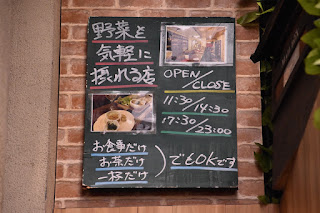 野菜と
気軽に
摂れる店
OPEN/
CLOSE
11:30/14:30
17:30/23:00
お食事だけ
お茶だけ
一杯だけ
でもOKです